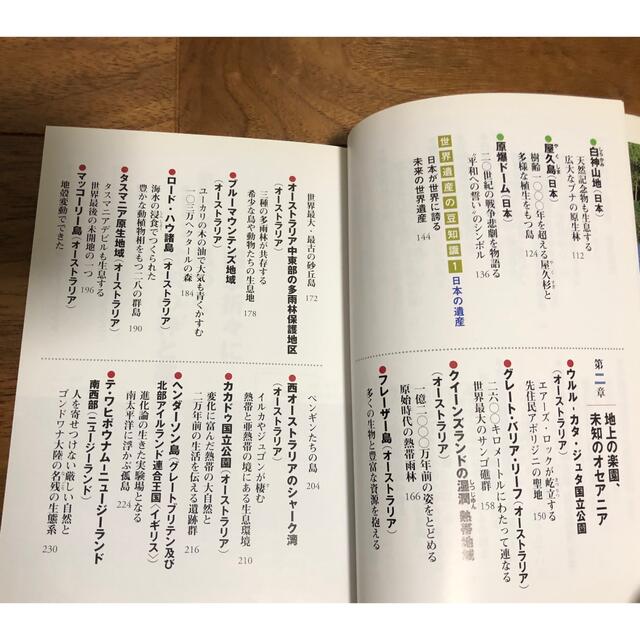 ●白神山地（日本）
天然記念物も生息する
広大なブナの原生林
112
●屋久島（日本）
樹齢一〇〇〇年を超える屋久杉と
多様な植生をもつ島
124
●原爆ドーム（日本）
二〇世紀の戦争悲劇を物語る
〝平和への誓い〟のシンボル
136
世界遺産の豆知識1 日本の遺産
日本が世界に誇る
未来の世界遺産
144
第二章
地上の楽園、
未知のオセアニア
●ウルル・カタ・ジュタ国立公園
（オーストラリア）
エアーズ・ロックが屹立する
先住民アボリジニの聖地
150
●グレート・バリア・リーフ（オーストラリア）
二六〇〇キロメートルにわたって連なる
世界最大のサンゴ礁群
158
●クイーンズランドの湿潤熱帯地域
（オーストラリア）
一億二〇〇〇万年前の姿をとどめる
原始時代の熱帯雨林
166
●フレーザー島（オーストラリア）
多くの生物と豊富な資源を抱える
世界最大・最古の砂丘島
172
●オーストラリア中東部の多雨林保護地区
（オーストラリア）
三種の多雨林が共存する
希少な鳥や動物たちの生息地
178
●ブルーマウンテンズ地域
（オーストラリア）
ユーカリの木の油で大気も青くかすむ
一〇三万ヘクタールの森
184
●ロード・ハウ諸島（オーストラリア）
海水の浸食でつくられた
豊かな動植物相をもつ二八の群島
190
●タスマニア原生地域（オーストラリア）
タスマニアデビルも生息する
世界最後の未開地の一つ
196
●マッコーリー島（オーストラリア）
地殻変動でできた
ペンギンたちの島
204
●西オーストラリアのシャーク湾
（オーストラリア）
イルカやジュゴンが棲む
熱帯と亜熱帯の境にある生息環境
210
●カカドゥ国立公園（オーストラリア）
変化に富んだ熱帯の大自然と
二万年前の生活を伝える遺跡群
216
●ヘンダーソン島（グレートブリテン及び
北部アイルランド連合王国〈イギリス〉）
進化論の生きた実験場となる
南太平洋に浮かぶ孤島
224
●テ・ワヒポウナム―ニュージーランド
南西部（ニュージーランド）
人を寄せつけない厳しい自然と
ゴンドワナ大陸の名残の生態系
230